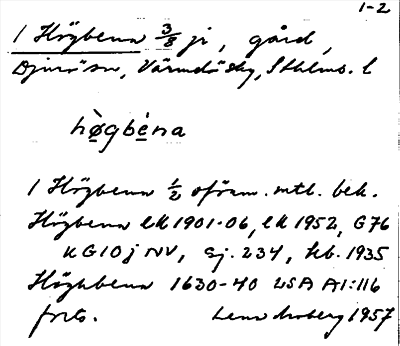 1-2
1 Högbena 3/8 jr, gård,
Djurö sn, Värmdö skg, Sthlms. l
hø̀gbèna
1 Högbena 1/2 oförm. mtl. bek.
Högbena EK 1901-06, EK 1952, G76
KG10j NV, Sj. 234, hb. 1935
Högbena 1630-40 LSA A1:116
forts. Lena Moberg 1957